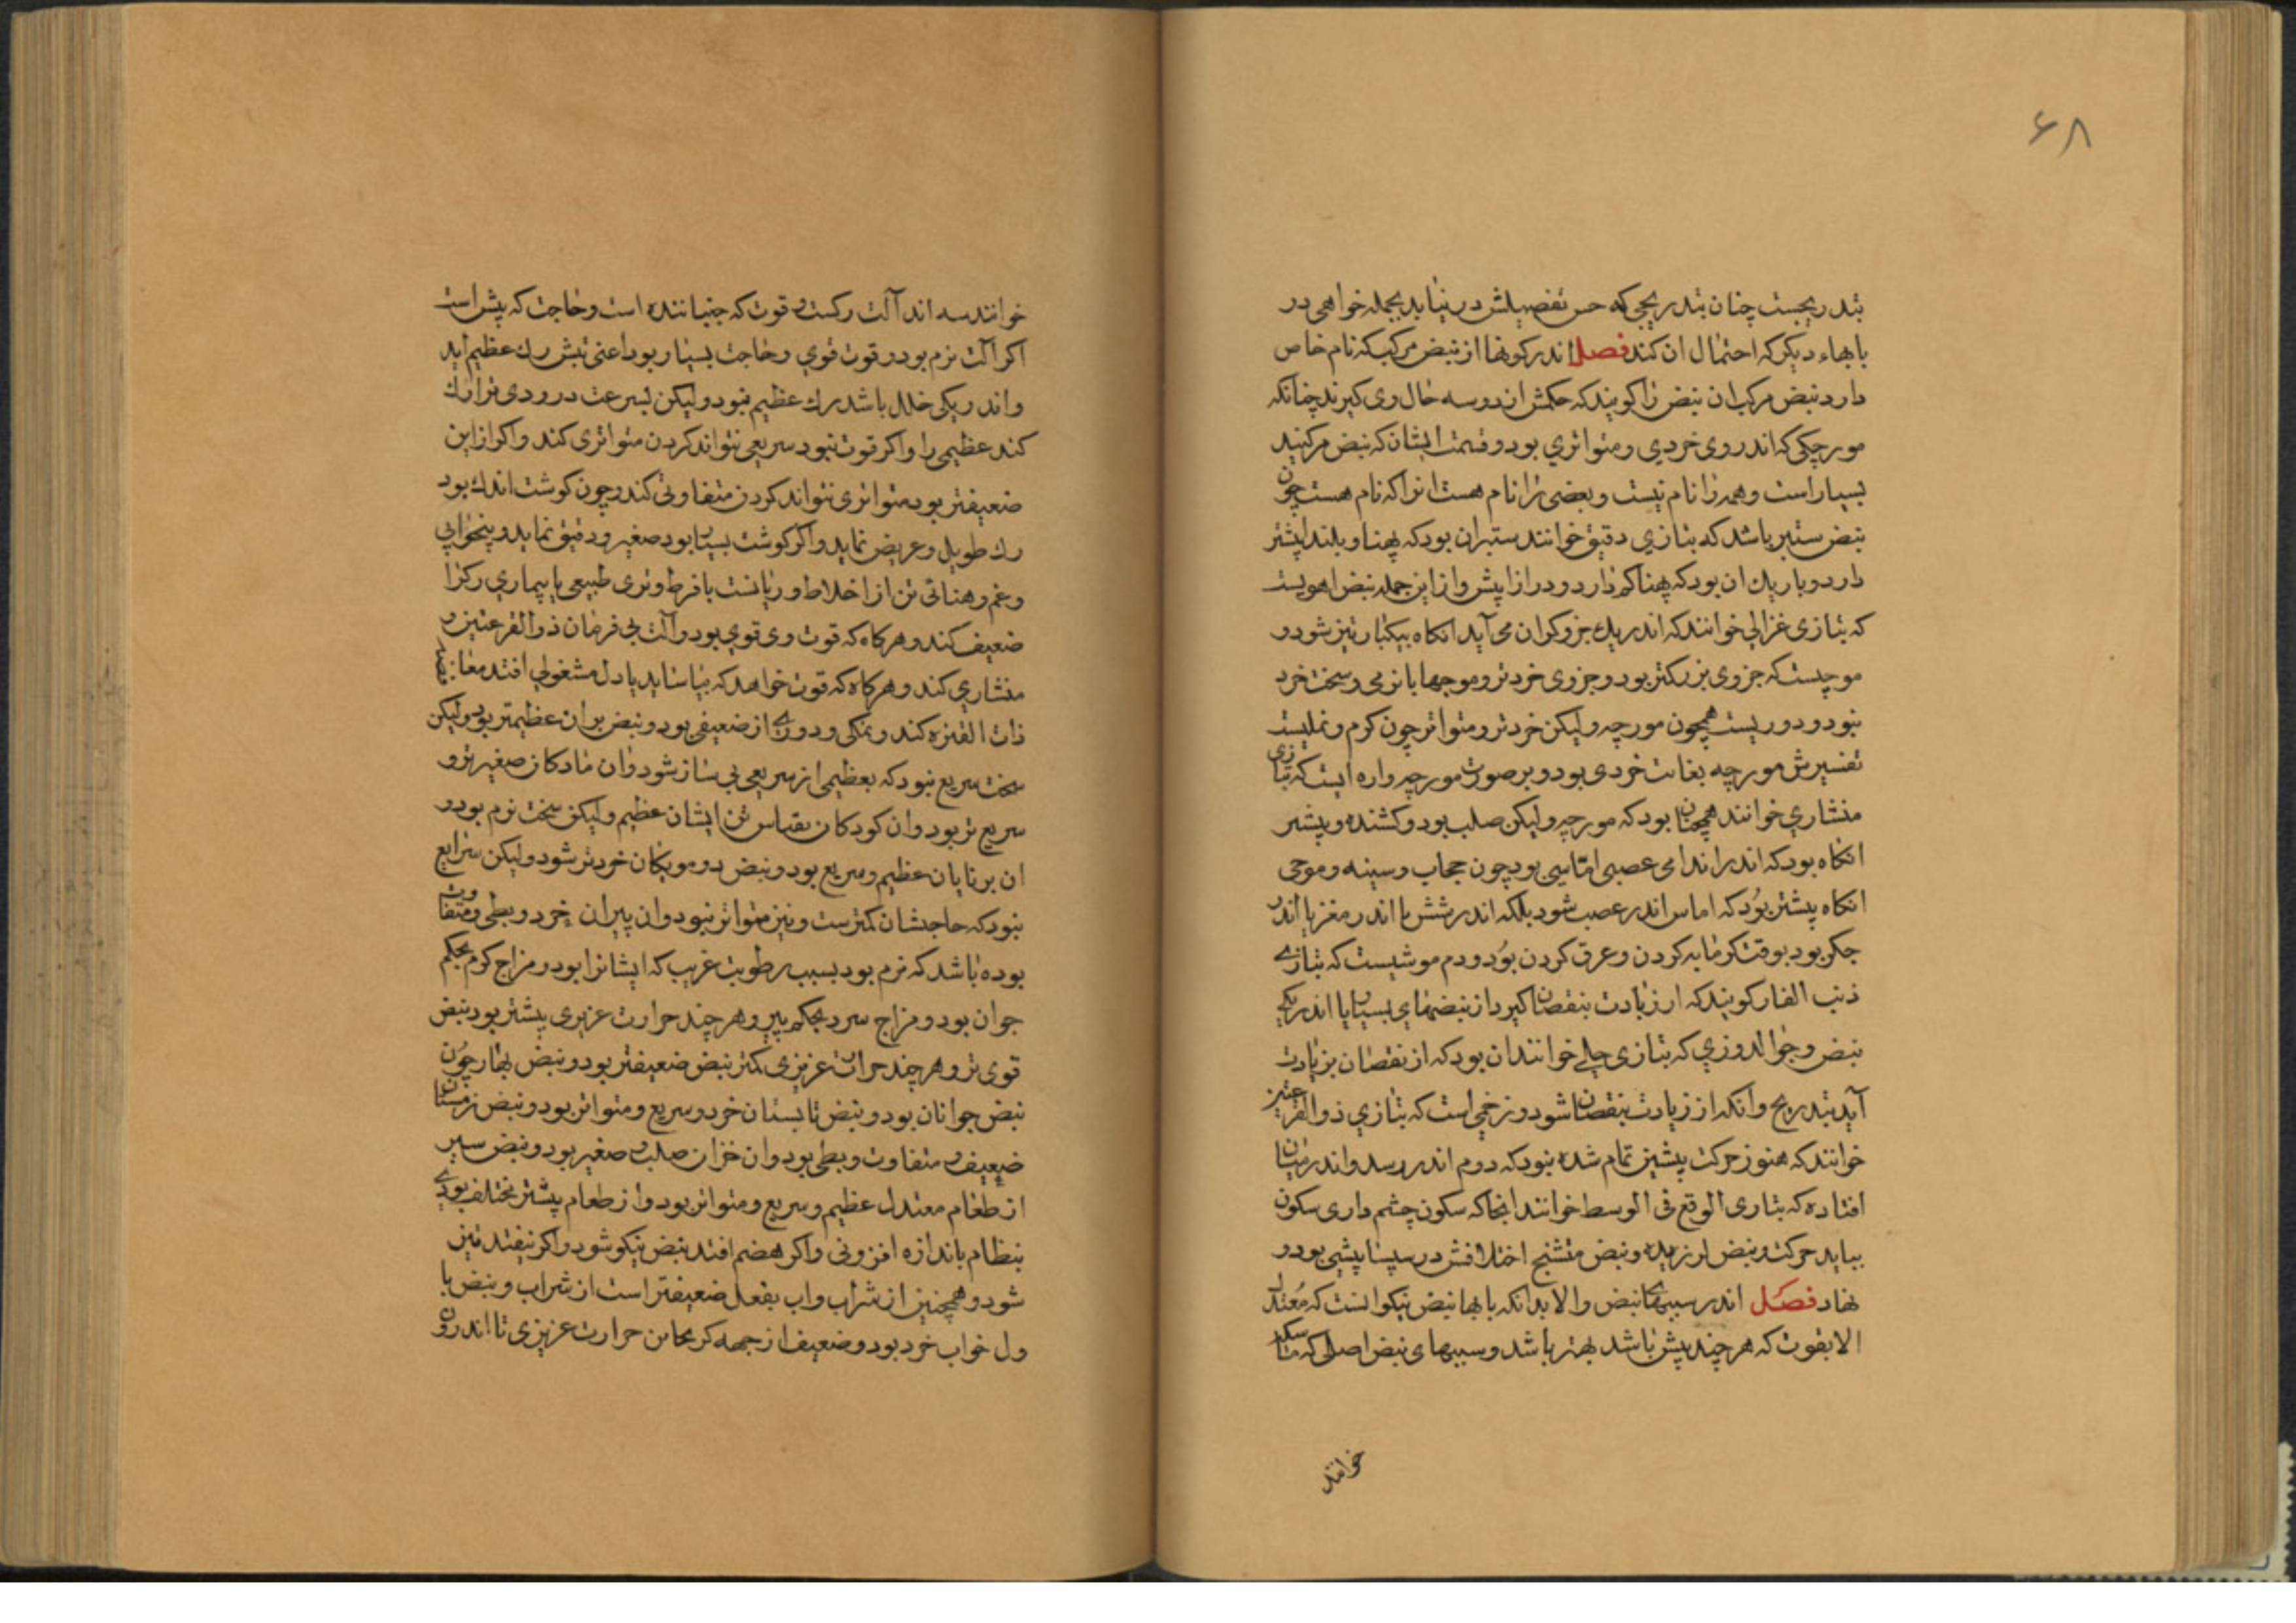 ۶۸
بتدریجست چنان بتدریجی که حس تفصیلش درنیابد بجمله خواهی در
بابهاء دیکر که احتمال ان کند فصل اندر کونها از نبض مرکب که نام خاص
دارد نبض مرکب ان نبض را کویند که حکمش از دو سه حال وی کیرند چنانکه
مورچکی که اندر وی خردی و متواتری بود و قسمت ایشان که نبض مرکبند
بسیار است و همه را نام نیست و بعضی را نام هست انرا که نام هست چون
نبض ستبر باشد که بتازی دقیق خوانند ستبر ان بود که پهنا و بلندا پیشتر
دارد و باریک ان بود که پهنا کم دارد و درازا پیش و از این جمله نبض اهویست
که بتازی غزالی خوانند که اندر یک جزو کران می آید انکاه بیکبار تیز شود و
موجیست که جزوی بزرکتر بود و جزوی خردتر و موجها با نرمی و سخت خرد
نبود و دوریست همچون مورچه ولیکن خردتر و متواتر چون کرم و نملیست
تفسیرش مورچه بغایت خردی بود و بر صورت مورچه واره ایست که بتازی
منشاری خوانند همچنان بود که مورچه ولیکن صلب بود و کشنده و پیشتر
انکاه بود که اندر اندامی عصبی اماسی بود چون حجاب و سینه و موجی
انکاه پیشتر بود که اماس اندر عصب شود بلکه اندر شش یا اندر مغز یا اندر
جکر بود بوقت کرمابه کردن و عرق کردن بود و دم موشیست که بتازی
ذنب الفار کویند که از زیادت بنقصان کیرد از نبضهای بسیار یا اندر یکی
نبض و جوالدوزی که بتازی خوانند ان بود که از نقصان بزیادت
آید بتدریج و انکه از زیادت بنقصان شود و زخمی است که بتازی ذو القرعتین
خوانند که هنوز حرکت پیشین تمام شده نبود که دوم اندر رسد و اندر میان
افتاده که بتازی الوقع فی الوسط خوانند انجا که سکون چشم داری سکون
بیاید حرکت و نبض لرزیده و نبض متشنج اختلافش در بود و
نهاد فصل اندر سببهای نبض والا بدانکه بابها نبض نیکو انست که معتدل
الا بقوت که هر چند پیش باشد بهتر باشد و سببهای نبض اصلی که
خوانند
خوانند سه اند آلت رکست و قوت که جنباننده است و حاجت که پیش است
اکر آلت نرم بود و قوت قوی و حاجت بسیار بود اعنی تبش رک عظیم آید
و اندر یکی خلل باشد رک عظیم نبود ولیکن بسرعت در رودی تدارک
کند عظیمی را و اکر قوت نبود سریعی نتواند کردن متواتری کند و اکر از این
ضعیفتر بود متواتری نتواند کردن متفاوتی کند و چون کوشت اندک بود
رک طویل و عریض نماید و اکر کوشت بسیار بود صغیر و دقیق نماید و بیخوابی
و غم و تن از اخلاط و ریاضت بافراط و تری طبیعی یا بیماری رک را
ضعیف کند و هر کاه که قوت وی قوی بود و آلت بی فرمان ذو القرعتین و
منشاری کند و هر کاه که قوت خواهد که بیاساید یا دل مشغولی افتد
ذات الفتره کند و و از ضعیفی بود و نبض عظیمتر بود ولیکن
سخت سریع نبود که بعظیمی از سریعی بی نیاز شود و ان مادکان صغیرتر و
سریع تر بود و ان کودکان بقیاس تن ایشان عظیم ولیکن سخت نرم بود و
ان برنایان عظیم و سریع بود و نبض دو مویکان خردتر شود ولیکن سریع
نبود که حاجتشان کمترست و نیز متواتر نبود و ان پیران خرد و بطی و متفاوت
بوده باشد که نرم بود بسبب رطوبت غریب که ایشانرا بود و مزاج کرم بحکم
جوان بود و مزاج سرد بحکم پیر و هر چند حرارت غریزی پیشتر بود نبض
قوی تر و هر چند حرارت غریزی کمتر نبض ضعیفتر بود و نبض بهار چون
نبض جوانان بود و نبض تابستان خرد و سریع و متواتر بود و نبض زمستان
ضعیف و متفاوت و بطی بود و ان خزان صلب و صغیر بود و نبض سیر
از طعام معتدل عظیم و سریع و متواتر بود و از طعام پیشتر مختلف بود بی
نظام باندازه افزونی و اکر هضم افتد نبض نیکو شود و اکر نیفتد نیز
شود و همچنین از شراب و اب بفعل ضعیفتر است از شراب و نبض با
ول خواب خرد بود و ضعیف از جهه حرارت غریزی تا اندرون